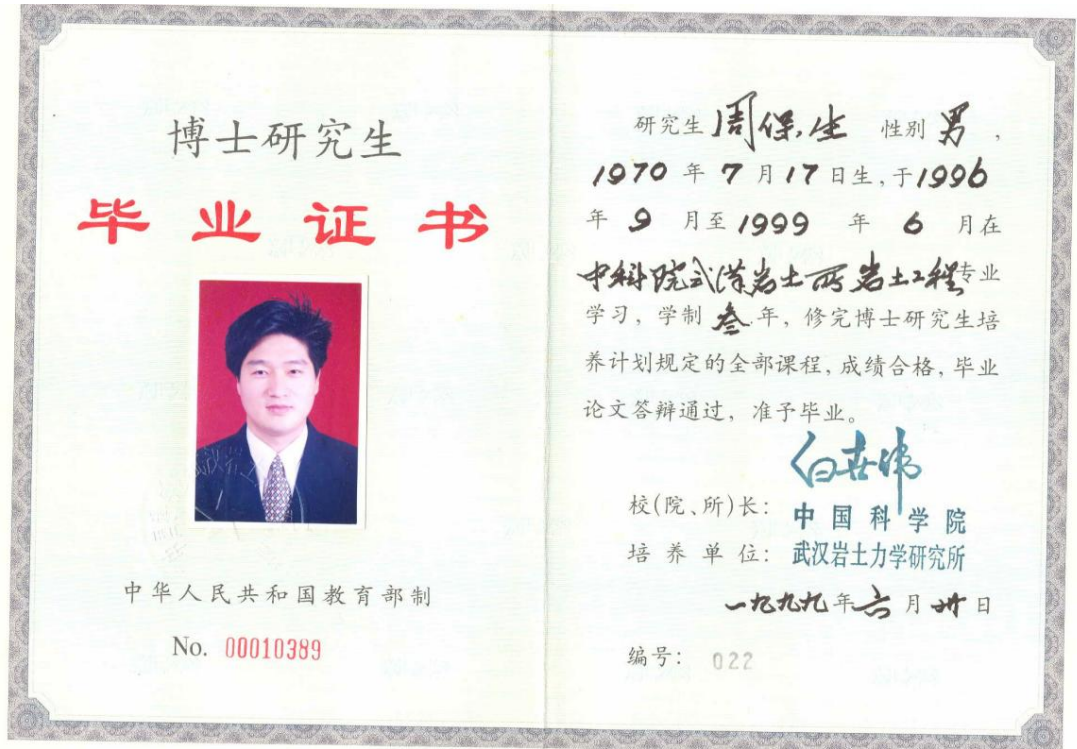 博士研究生
毕业证书
中华人民共和国教育部制
No. 00010389
研究生 周保生 性别 男，
1970 年 7 月 17 日生，于1996
年 9 月至 1999 年 6 月在
中科院武汉岩土所岩土工程专业
学习，学制 叁 年，修完博士研究生培
养计划规定的全部课程，成绩合格，毕业
论文答辩通过，准予毕业。
白世伟
校(院、所)长：
中国科学院
培养单位：武汉岩土力学研究所
一九九九年六月廿日
编号：022